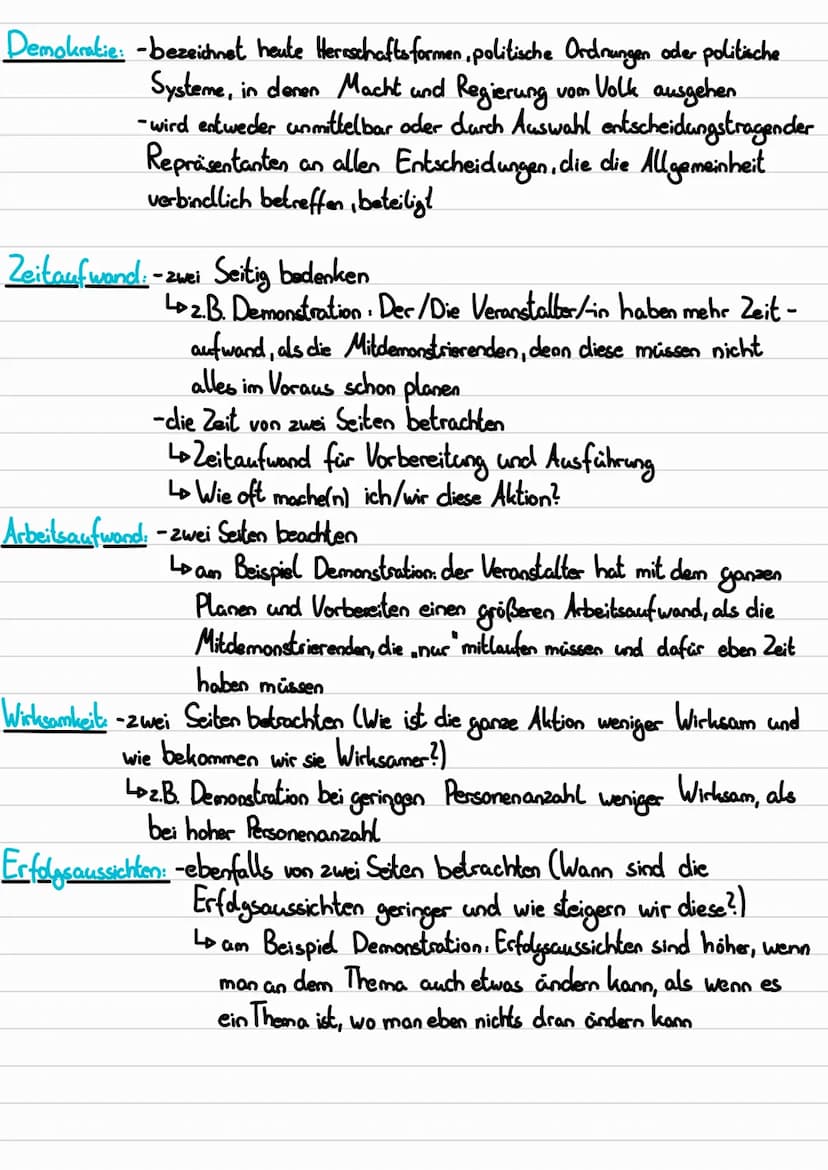 Demokratie: -bezeichnet heute Herrschaftsformen, politische Ordnungen oder politische
Systeme, in denen Macht und Regierung vom Volk ausgehen
-wird entweder unmittelbar oder durch Auswahl entscheidungstragender
Repräsentanten an allen Entscheidungen, die die Allgemeinheit
verbindlich betreffen, beteiligt
Zeitaufwand: -zwei Seitig bedenken
↳z.B. Demonstration: Der/Die Veranstalter/-in haben mehr Zeit-
aufwand, als die Mitdemonstrierenden, denn diese müssen nicht
alles im Voraus schon planen
-die Zeit von zwei Seiten betrachten
↳Zeitaufwand für Vorbereitung und Ausführung
↳Wie oft mache(n) ich/wir diese Aktion?
Arbeitsaufwand: -zwei Seiten beachten
↳am Beispiel Demonstration: der Veranstalter hat mit dem ganzen
Planen und Vorbereiten einen größeren Arbeitsaufwand, als die
Mitdemonstrierenden, die „nur" mitlaufen müssen und dafür eben Zeit
haben müssen
Wirksamkeit: -zwei Seiten betrachten (Wie ist die ganze Aktion weniger Wirksam und
wie bekommen wir sie Wirksamer?)
↳z.B. Demonstration bei geringen Personenanzahl weniger Wirksam, als
bei hoher Personenanzahl
Erfolgsaussichten: -ebenfalls von zwei Seiten betrachten (Wann sind die
Erfolgsaussichten geringer und wie steigern wir diese?)
↳am Beispiel Demonstration: Erfolgsaussichten sind höher, wenn
man an dem Thema auch etwas ändern kann, als wenn es
ein Thema ist, wo man eben nichts dran ändern kann